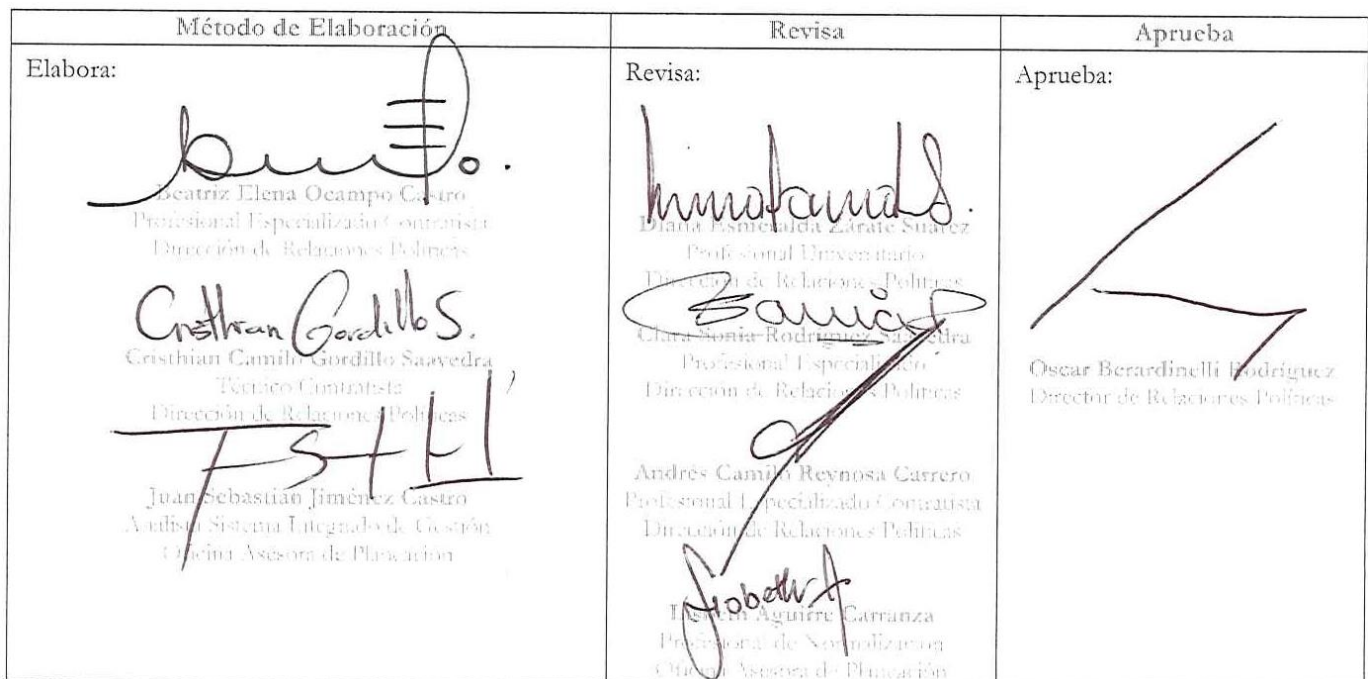 Método de Elaboración
Revisa
Aprueba
Elabora:
Beatriz Elena Ocampo Castro
Profesional Especializado Contratista
Dirección de Relaciones Políticas
Cristhian Gordillo S.
Cristhian Camilo Gordillo Saavedra
Técnico Contratista
Dirección de Relaciones Políticas
Juan Sebastián Jiménez Castro
Analista Sistema Integrado de Gestión
Oficina Asesora de Planeación
Revisa:
Diana Esmeralda Zárate Suárez
Profesional Universitario
Dirección de Relaciones Políticas
Clara Sonia Rodríguez Saavedra
Profesional Especializado
Dirección de Relaciones Políticas
Andrés Camilo Reynosa Carrero
Profesional Especializado Contratista
Dirección de Relaciones Políticas
Aguirre Carranza
Profesional de Normalización
Oficina Asesora de Planeación
Aprueba:
Oscar Berardinelli Rodríguez
Director de Relaciones Políticas